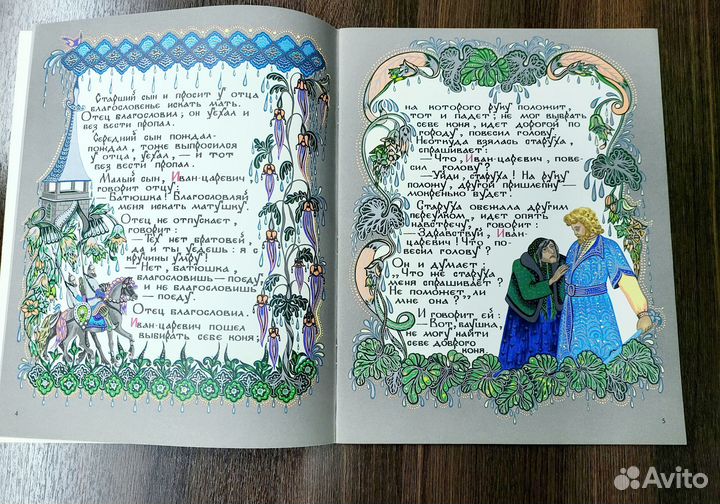 Старший сын и просит у отца
благословенье искать мать.
Отец благословил; он уехал и
без вести пропал.
Середний сын пождал-
пождал, тоже выпросился
у отца, уехал, — и тот
без вести пропал.
Малый сын, Иван-царевич,
говорит отцу:
— Батюшка! Благословляй
меня искать матушку.
Отец не отпускает,
говорит:
— Тех нет братовей,
да и ты уедешь: я с
кручины умру!
— Нет, батюшка,
благословишь — поеду,
и не благословишь —
поеду.
Отец благословил.
Иван-царевич пошел
выбирать себе коня;
4
на которого руку положит,
тот и падет; не мог выбрать
себе коня, идет дорогой по
городу, повесил голову.
Неоткуда взялась старуха,
спрашивает:
— Что, Иван-царевич, пове-
сил голову?
— Уйди, старуха! На руку
положу, другой пришлепну —
мокренько будет.
Старуха обежала другим
переулком, идет опять
навстречу, говорит:
— Здравствуй, Иван-
царевич! Что по-
весил голову?
Он и думает:
„Что же старуха
меня спрашивает?
Не поможет ли
мне она?”
И говорит ей:
— Вот, баушка,
не могу найти
себе доброго
коня.
5
Avito